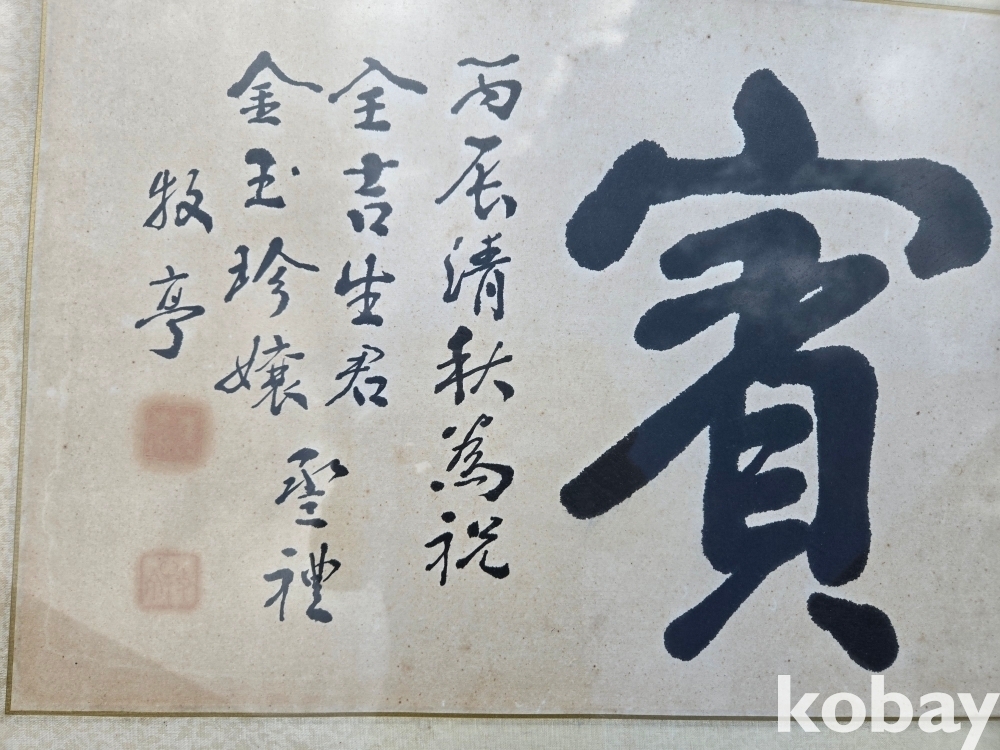 賓
丙辰清秋為祝
全吉生君
金玉珍孃
聖禮
牧亭
kobay